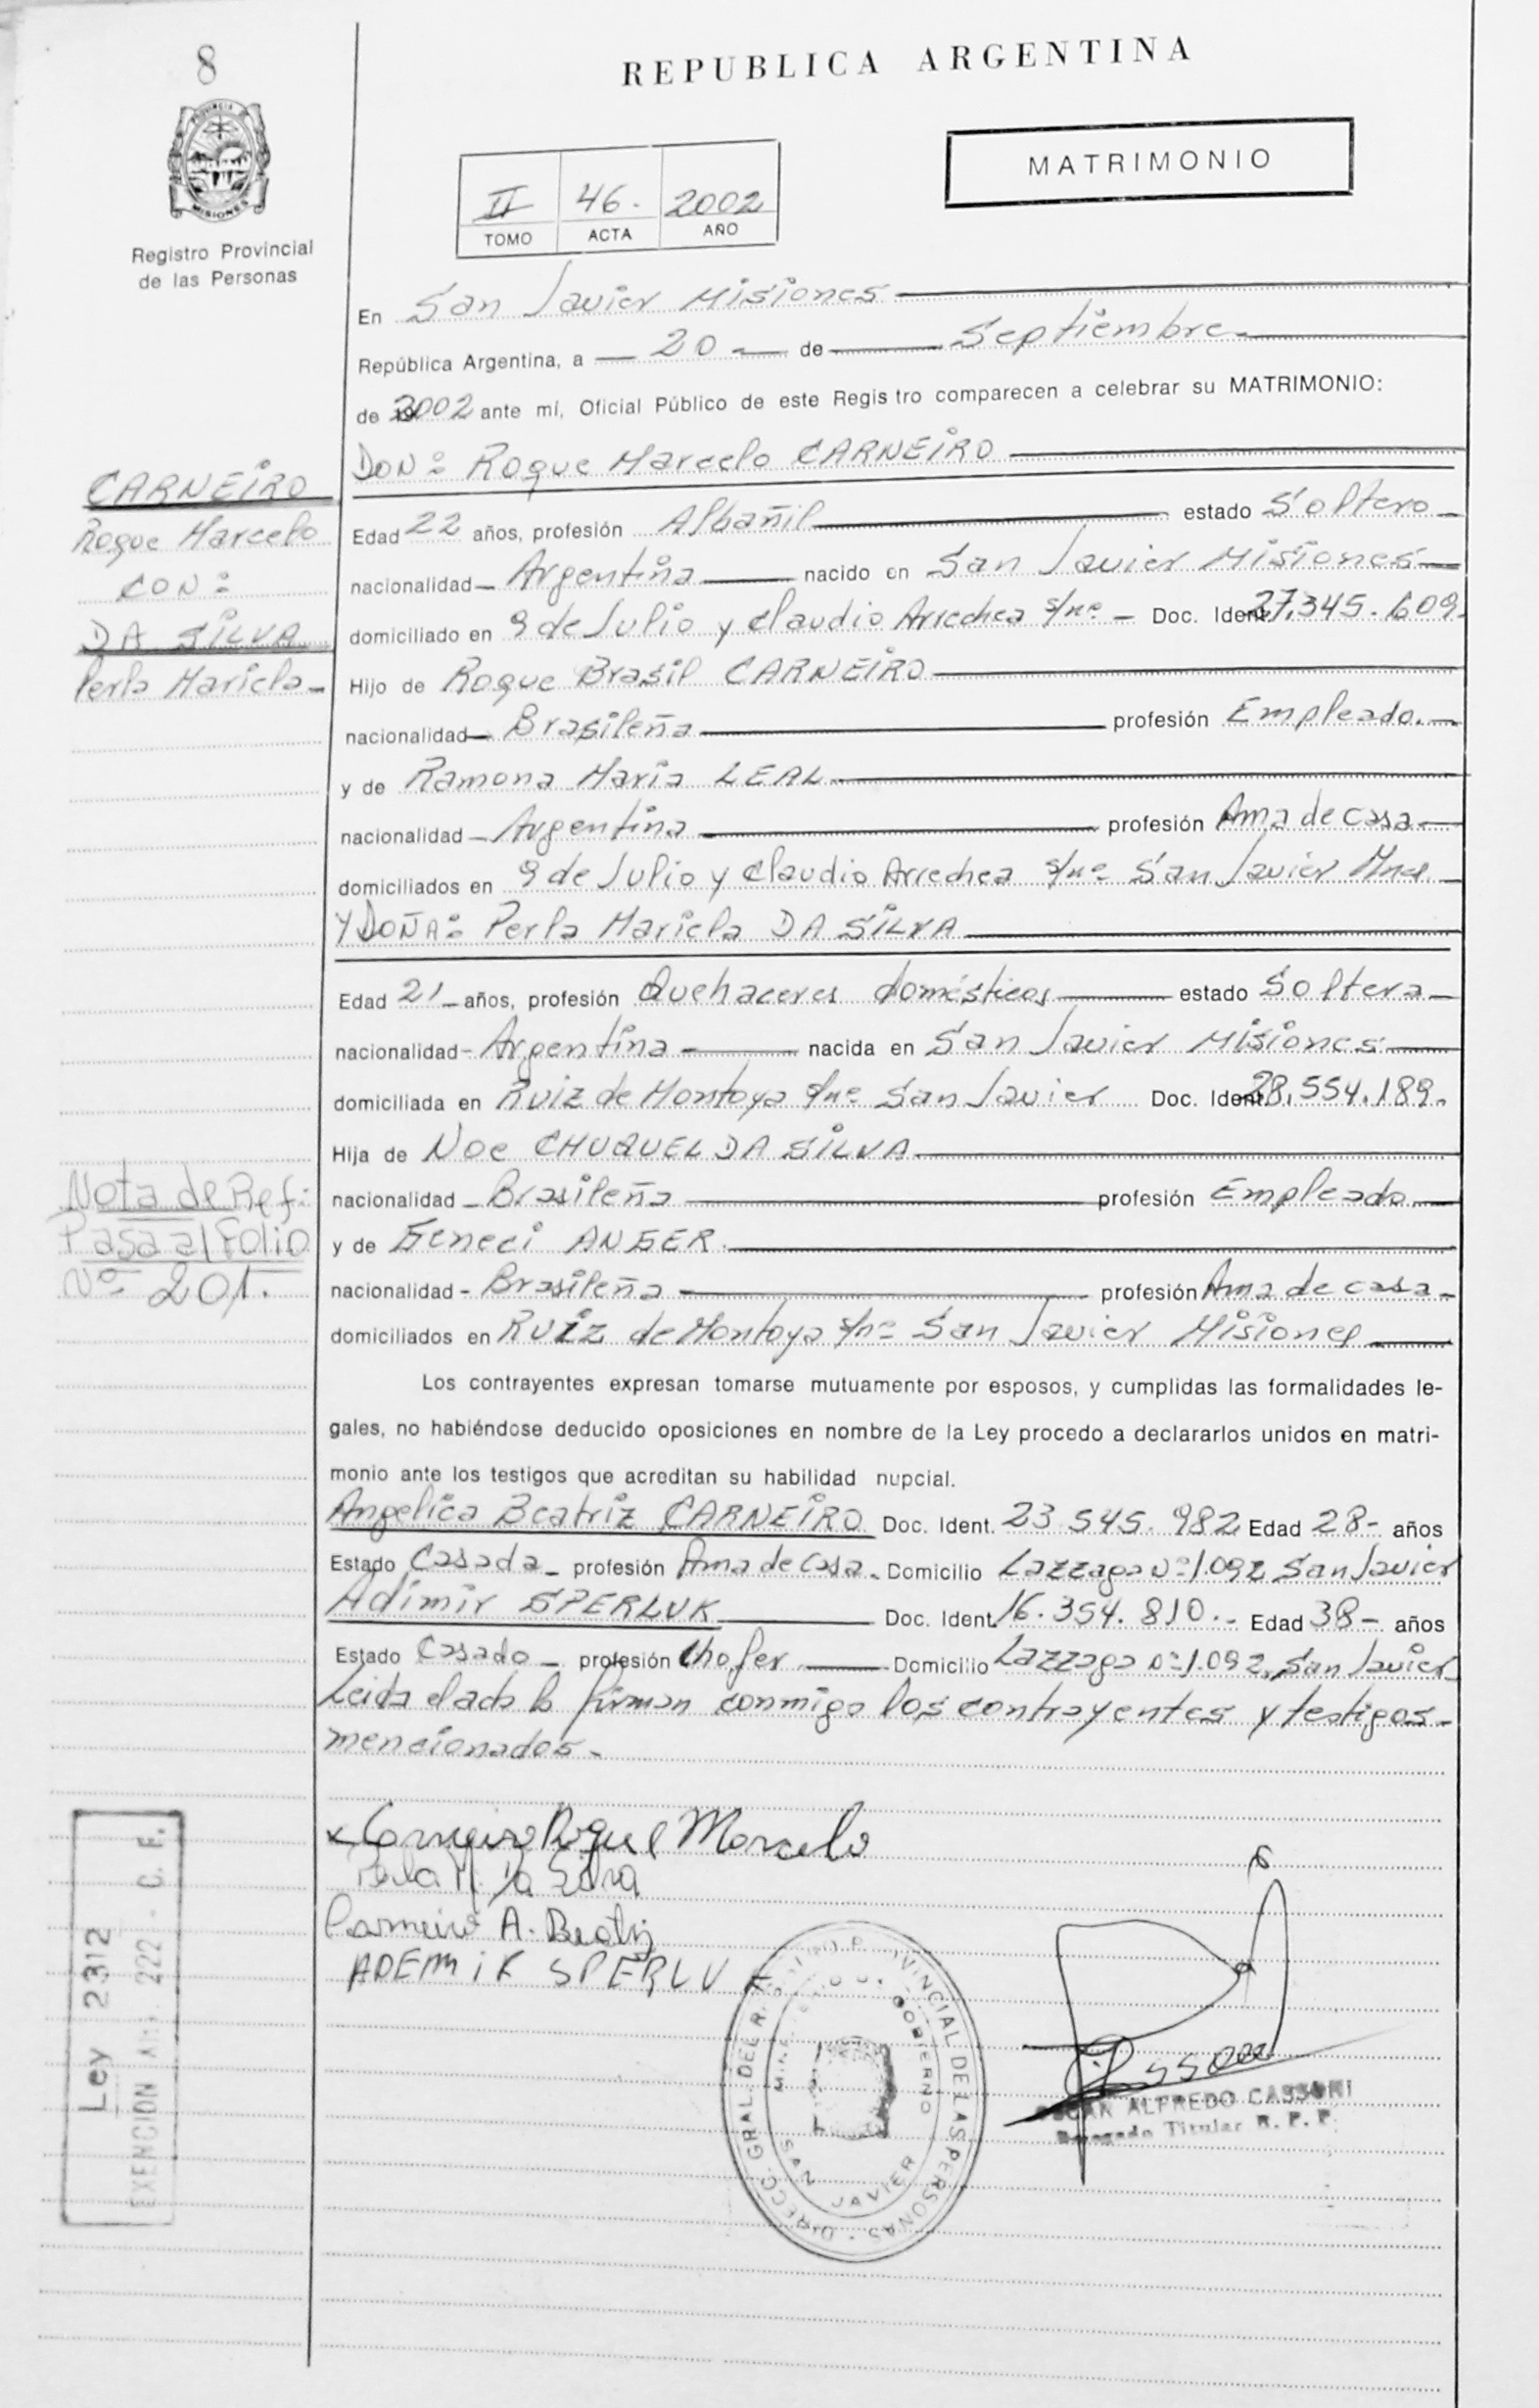 8
REPUBLICA ARGENTINA
MATRIMONIO
PROVINCIA
MISIONES
Registro Provincial
de las Personas
II 46. 2002
TOMO ACTA AÑO
En San Javier Misiones
República Argentina, a 20 de Septiembre
de 2002 ante mí, Oficial Público de este Registro comparecen a celebrar su MATRIMONIO:
DON: Roque Marcelo CARNEIRO
CARNEIRO
Roque Marcelo
CON:
DA SILVA
Perla Mariela
Edad 22 años, profesión Albañil estado Soltero
nacionalidad Argentina nacido en San Javier Misiones
domiciliado en 9 de Julio y Claudio Arrechea s/nº Doc. Ident. 27.345.609.
Hijo de Roque Brasil CARNEIRO
nacionalidad Brasileña profesión Empleado.
y de Ramona María LEAL
nacionalidad Argentina profesión Ama de casa
domiciliados en 9 de Julio y Claudio Arrechea s/nº San Javier Mnes
Y DOÑA: Perla Mariela DA SILVA
Edad 21 años, profesión Quehaceres domésticos estado Soltera
nacionalidad Argentina nacida en San Javier Misiones
domiciliada en Ruiz de Montoya s/nº San Javier Doc. Ident. 28.554.189.
Hija de Noe CHUQUEL DA SILVA
nacionalidad Brasileña profesión Empleado
y de ANGER
nacionalidad Brasileña profesión Ama de casa
domiciliados en Ruiz de Montoya s/nº San Javier Misiones
Nota de Ref:
Pasa al Folio
Nº 201.
Los contrayentes expresan tomarse mutuamente por esposos, y cumplidas las formalidades le-
gales, no habiéndose deducido oposiciones en nombre de la Ley procedo a declararlos unidos en matri-
monio ante los testigos que acreditan su habilidad nupcial.
Angelica Beatriz CARNEIRO Doc. Ident. 23.545.982 Edad 28 años
Estado Casada profesión Ama de casa Domicilio Lazzaga nº 1.092 San Javier
Adimir SPERLUK Doc. Ident. 16.354.810. Edad 38 años
Estado Casado profesión Chofer Domicilio Lazzaga nº 1.092 San Javier
Leida el acta la firman conmigo los contrayentes y testigos
mencionados.
Carneiro Roque Marcelo
Perla M. Da Silva
Carneiro A. Beatriz
ADEMIR SPERLUK
Ley 2312
EXENCION Art. 222 - C. F.
DIRECC. GRAL. DEL R. PROVINCIAL DE LAS PERSONAS
GOBIERNO
SAN JAVIER
OSCAR ALFREDO CASSONI
Delegado Titular R. P. P.